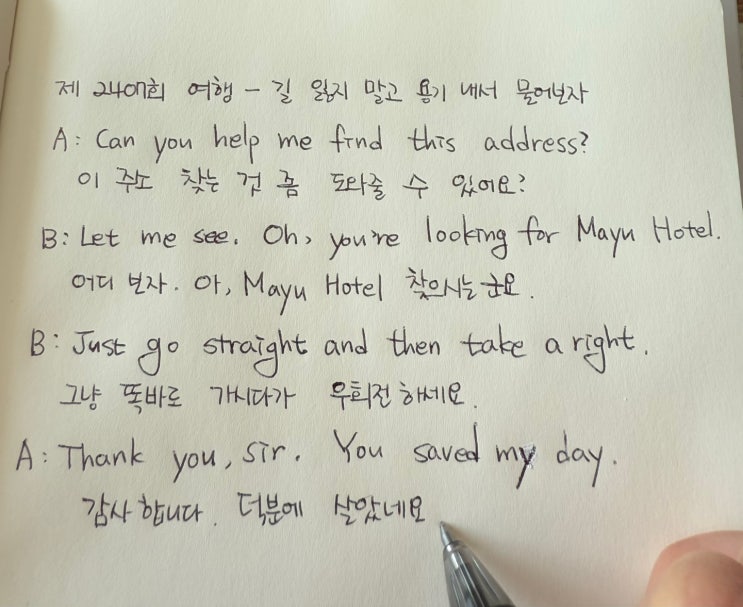 제 2407회 여행 - 길 잃지 말고 용기 내서 물어보자
A: Can you help me find this address?
이 주소 찾는 것 좀 도와줄 수 있어요?
B: Let me see. Oh, you're looking for Mayu Hotel.
어디 보자. 아, Mayu Hotel 찾으시는군요.
B: Just go straight and then take a right.
그냥 똑바로 가시다가 우회전하세요.
A: Thank you, sir. You saved my day.
감사합니다. 덕분에 살았네요